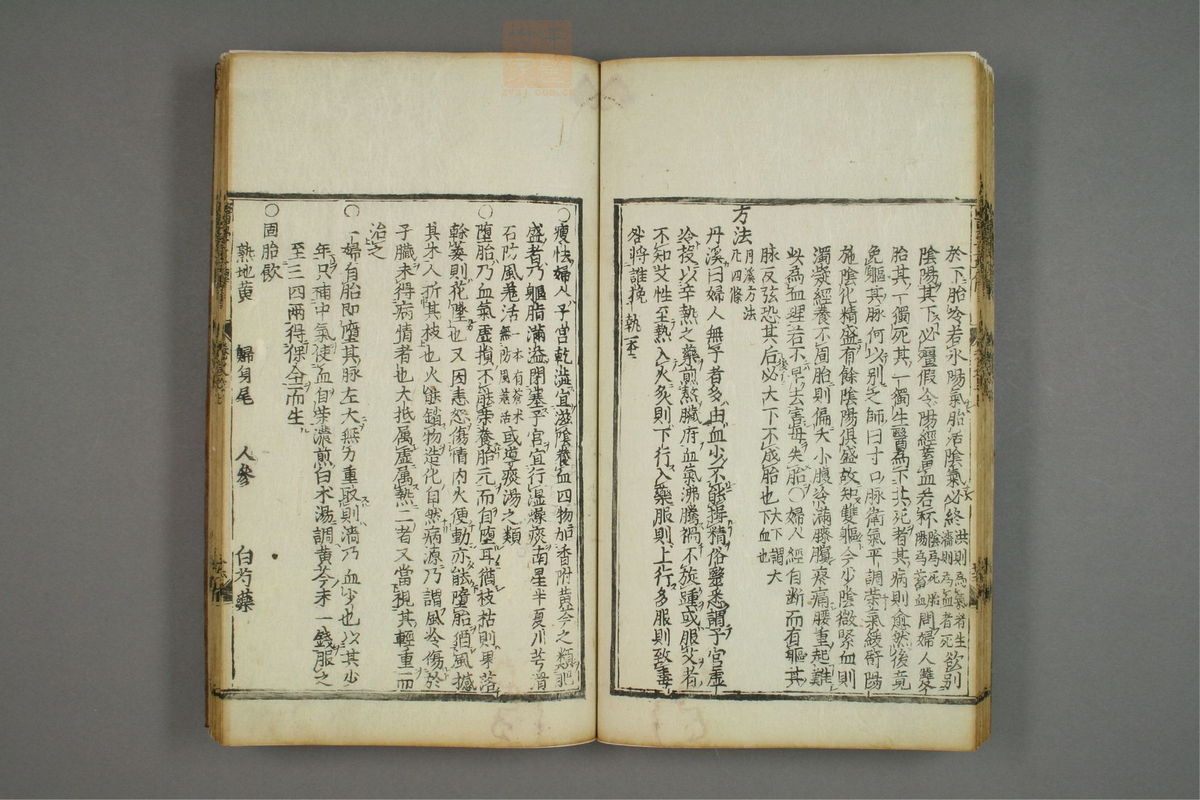 於下胎冷若氷陽氣胎活陰氣必終洪則為氣者生濇則為血者死欲別
陰陽其下必疆假令陽經蓄血若杯陰為死胎陽為蓄血問婦人雙
胎其一獨死其一獨生醫為下共死者其病則愈然後竟
免軀其脉何以別之師曰寸口脉衛氣平調榮氣緩舒陽
施陰化精盛有餘陰陽俱盛故知雙軀今少陰微緊血則
濁凝經養不周胎則偏夭小腹冷滿膝臏疼痛腰重起難
此為血理若不早去害母失胎〇婦人經自斷而有軀其
脉反弦恐其后必大下不成胎也大下謂大下血也
方法丹溪方法凡四條
丹溪曰婦人無子者多由血少不能攝精俗醫悉謂子宮虛
冷投以辛熱之藥煎熬臓府血氣沸騰禍不旋踵或服艾者
不知艾性至熱入火炙則下行入藥服則上行多服則致毒
咎將誰挽執
〇瘦怯婦人子宮乾澁宜滋陰養血四物加香附黄芩之類肥
盛者乃軀脂滿溢閉塞子宮宜行湿燥痰南星半夏川芎滑
石防風羗活一本有蒼朮無防風羗活或導痰湯之類
〇堕胎乃血氣虛損不能榮養胎元而自堕耳猶枝枯則果落
榦萎則花墜也又因恚怒傷情内火便動亦能墮胎猶風撼
其木人折其枝也火能鎔物造化自然病源乃謂風冷傷於
子臓未得病情者也大抵属虚属熱二者又當視其輕重而
治之
〇一婦自胎即堕其脉左大無力重取則濇乃血少也以其少
年只補中氣使血自荣濃煎白朮湯調黄芩末一錢服之
至三四兩得保全而生
〇固胎飮
熟地黄 歸身尾 人參 白芍藥